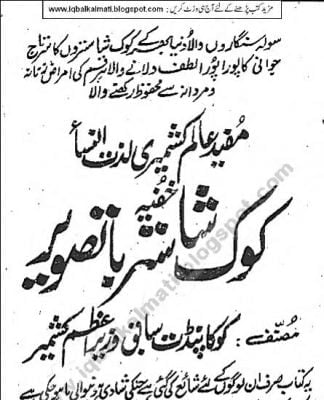 مزید کتب پڑھنے کے لئے آج ہی وزٹ کریں : www.iqbalkalmati.blogspot.com
سولہ سنگاروں والا دنیا بھر کے کوک شاستروں کا سرتاج
جوانی کا پورا پورا لطف دلانے والا ہر قسم کی امراض زنانہ
و مردانہ سے محفوظ رکھنے والا
مفید عالم کشمیری لذت النساء
خفیہ
کوک شاستر باتصویر
مصنف : کوکا پنڈت سابق وزیر اعظم کشمیر
یہ کتاب صرف ان لوگوں کے لئے شائع کی گئی ہے جنکی شادی ہونیوالی یا ہو چکی ہے
iqbalkalmati.blogspot.com